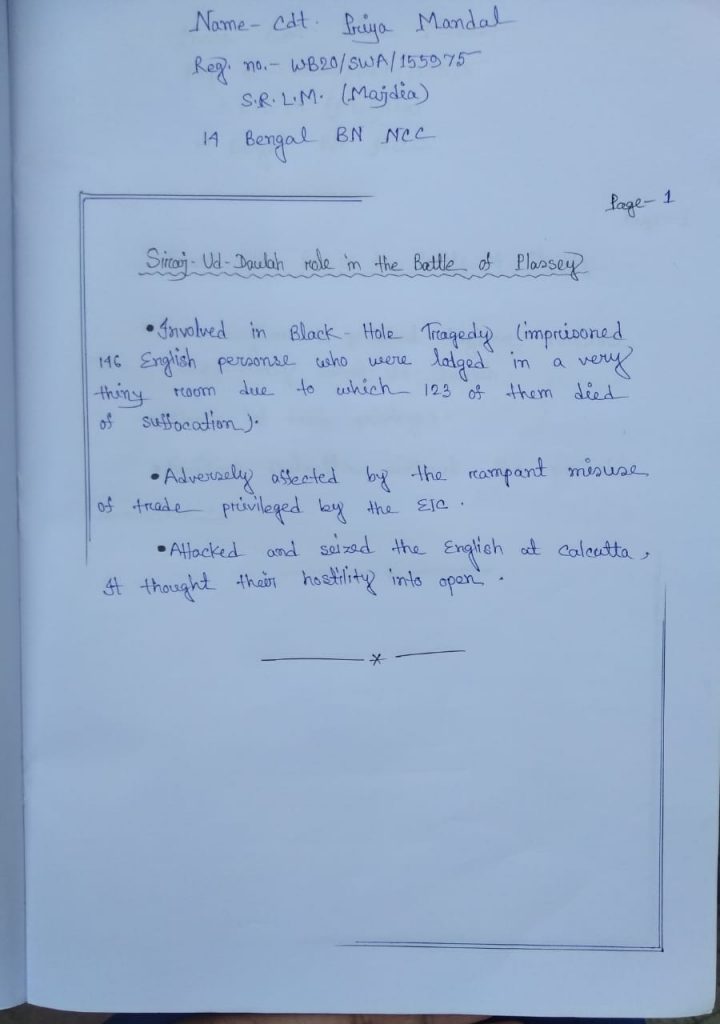 Name- Cdt. Priya Mandal
Reg. no.- WB20/SWA/155975
S.R.L.M. (Majdia)
14 Bengal BN NCC
Page- 1
Siraj-Ud-Daulah role in the Battle of Plassey
•Involved in Black-Hole Tragedy (imprisoned
146 English personse who were lodged in a very
thiny room due to which 123 of them died
of suffocation).
•Adversely affected by the rampant misuse
of trade privileged by the EIC.
•Attacked and seized the English at Calcutta,
It thought their hostility into open.